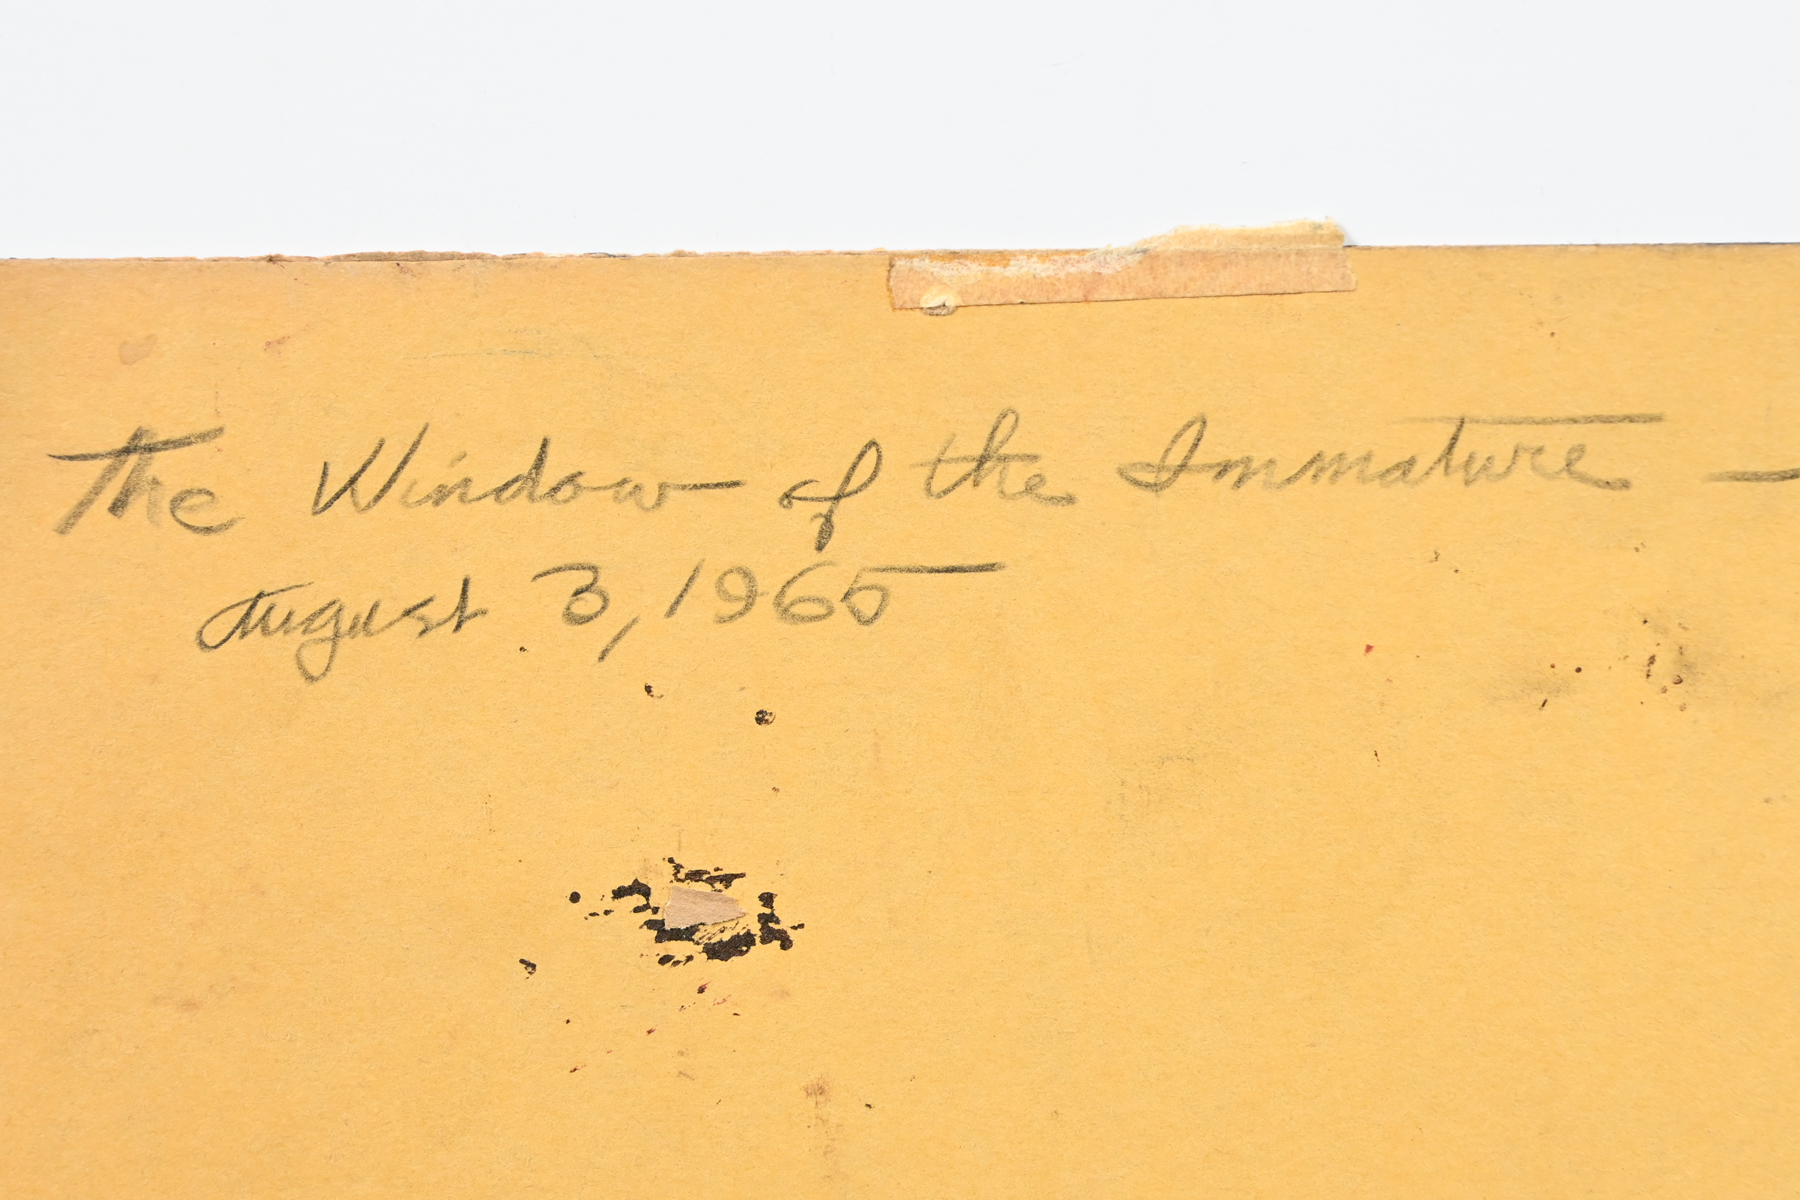 The Window of the Immature —
August 3, 1965